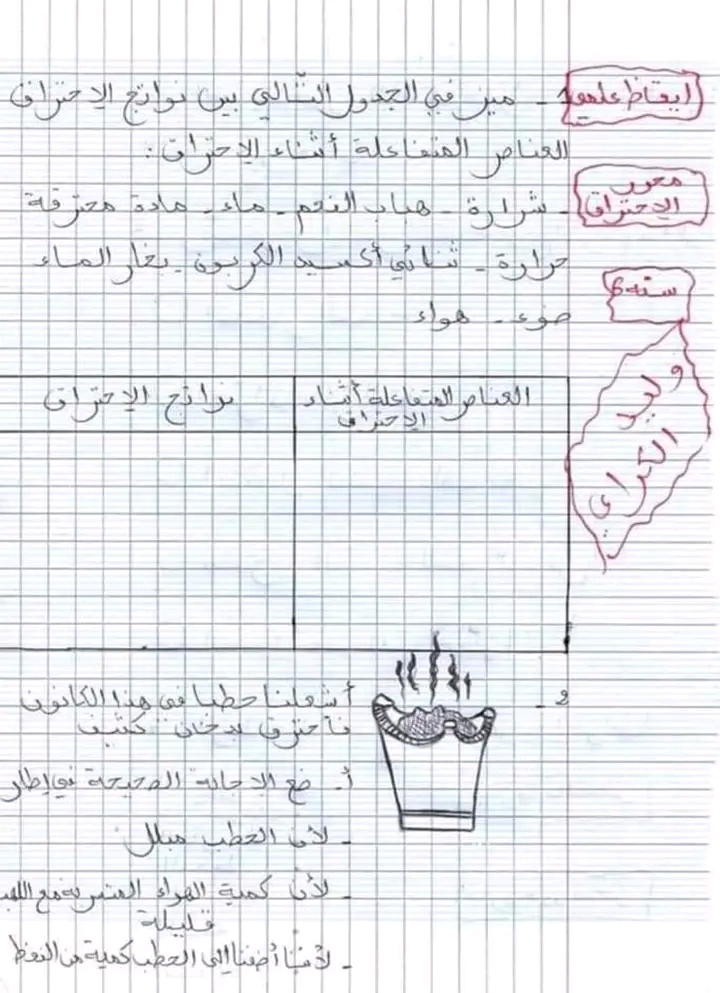 ايقاظ علمي
محور
الاحتراق
سنة 6
وليد
الكراي
1 - ميز في الجدول التالي بين نواتج الاحتراق
العناصر المتفاعلة أثناء الاحتراق :
- شرارة - هباب الفحم - ماء - مادة محترقة
حرارة - ثنائي أكسيد الكربون - بخار الماء
ضوء - هواء
العناصر المتفاعلة أثناء
الاحتراق
نواتج الاحتراق
2 - أشعلنا حطبا في هذا الكانون
فاحترق بدخان كثيف
أ- ضع الاجابة الصحيحة في إطار
- لأن الحطب مبلل
- لأن كمية الهواء المتسربة مع اللهب
قليلة
- لأننا أضفنا إلى الحطب كمية من النفط